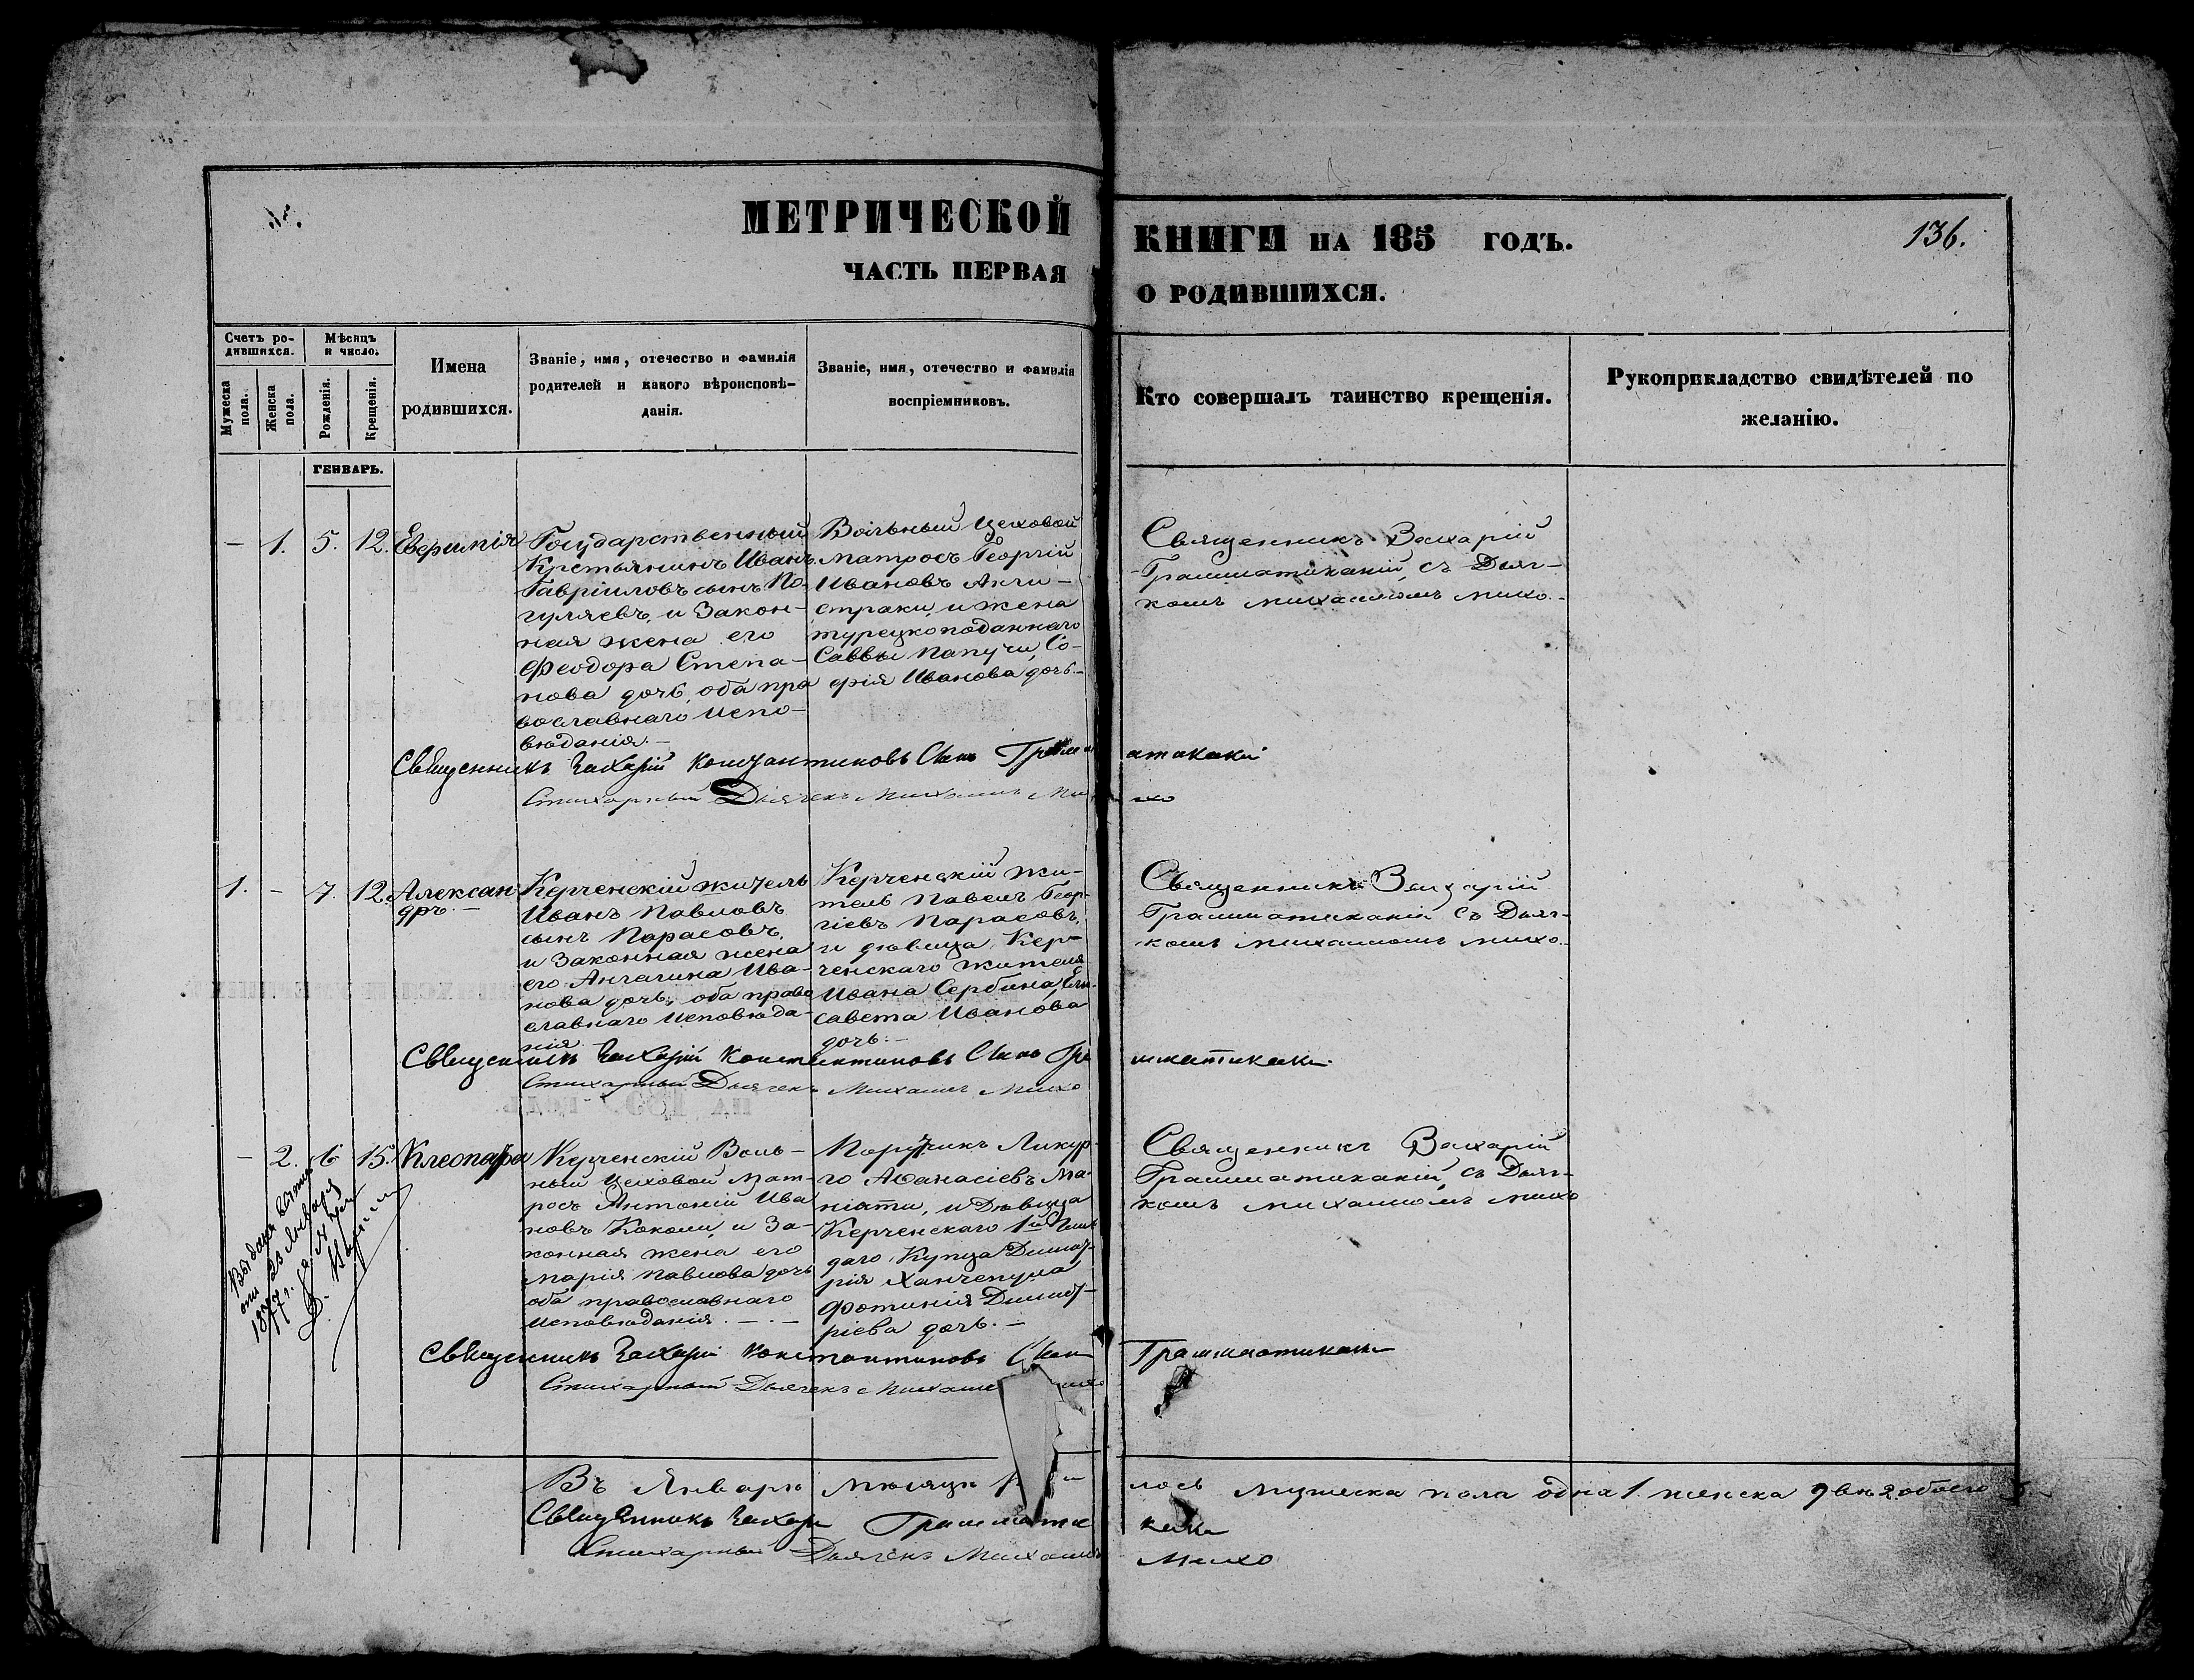 МЕТРИЧЕСКОЙ КНИГИ НА 185 ГОДЪ.
136.
ЧАСТЬ ПЕРВАЯ О РОДИВШИХСЯ.
Счетъ ро-
дившихся.
Мужеска пола.
Женска пола.
Мѣсяцъ
и число.
Рожденія.
Крещенія.
Имена
родившихся.
Званіе, имя, отечество и фамилія
родителей и какого вѣроисповѣ-
данія.
Званіе, имя, отечество и фамилія
воспріемниковъ.
Кто совершалъ таинство крещенія.
Рукоприкладство свидѣтелей по
желанію.
ГЕНВАРЬ.
— 1. 5. 12.
Государственный
Крестьянинъ Иванъ
Гавріиловъ сынъ По-
гуляевъ, и Закон-
ная жена его
Феодора Степа-
нова дочь, оба пра
вославнаго Испо-
вѣданія. —
Вольный Цеховой
матросъ Георгій
Ивановъ
и жена
турецкоподаннаго
Саввы Папучи, Со-
фія Иванова дочь. —
Священникъ Захарій
Грамматиканій, съ Дьяч-
комъ Михаиломъ Михо. —
Священникъ Захарій Константиновъ Сынъ
Стихарный Дьячекъ Михаилъ Михо
1. — 7. 12. Алексан-
дръ. —
Керченскій житель
Иванъ Павловъ
сынъ Парасовъ,
и Законная жена
его Ангелина Ива-
нова дочь, оба право
славнаго Исповѣда-
нія. —
Керченскій Жи-
тель Павелъ Геор-
гіевъ Парасовъ,
и дѣвица, Кер-
ченскаго жителя
Ивана Сербина, Ели-
савета Иванова
дочь. —
Священникъ Захарій
Грамматиканій съ Дьяч-
комъ Михаиломъ Михо.
Священникъ Захарій Константиновъ Сынъ Грамматикаки
Стихарный Дьячекъ Михаилъ Михо
— 2. 6 15. Клеопатра
Керченскій Воль-
ный Цеховой Мат-
росъ Антоній Ива
новъ Кокоми, и За-
конная жена его
Марія Павлова дочь
оба православнаго
Исповѣданія. — . —
Поручикъ Ликур-
го Аѳанасіевъ Ма-
ніати, и Дѣвица
Керченскаго 1й Гиль
даго Купца Димит-
рія
Фотинія Димит-
ріева дочь. —
Священникъ Захарій
Грамматиканій, съ Дьяч-
комъ Михаиломъ Михо
20 Января
1877 г.
Священникъ Захарій Константиновъ Сынъ Грамматикаки
Стихарный Дьячекъ Михаилъ
Въ Январѣ мѣсяцѣ лось мужеска пола одна 1. женска двѣ 2. обоего
Священникъ Захарій Грамматикаки
Стихарный Дьячекъ Михаилъ Михо